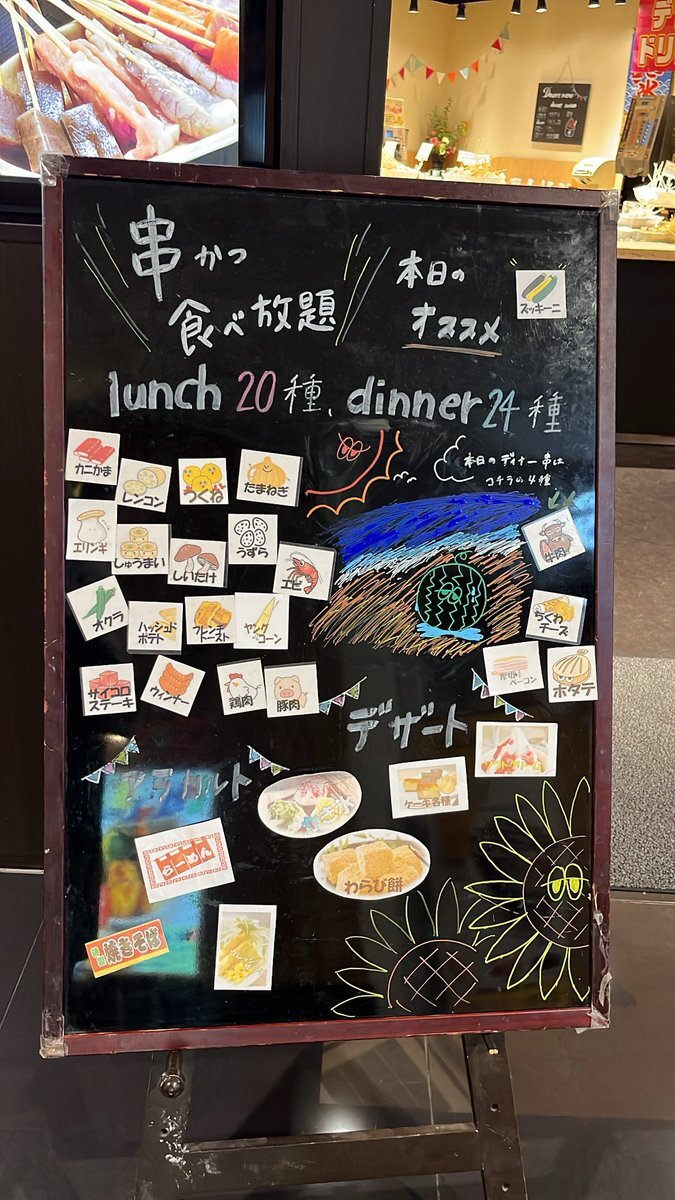 串かつ
食べ放題
本日の
オススメ
ズッキーニ
lunch 20種、dinner 24種
本日のディナー串は
コチラの4種
カニかま
レンコン
つくね
たまねぎ
エリンギ
しゅうまい
しいたけ
うずら
エビ
牛肉
オクラ
ハッシュド
ポテト
ヤング
コーン
ちくわ
チーズ
サイコロ
ステーキ
ウィンナー
鶏肉
豚肉
ベーコン
ホタテ
デザート
アラカルト
ソフトクリーム
ケーキ各種
らーめん
わらび餅
焼きそば